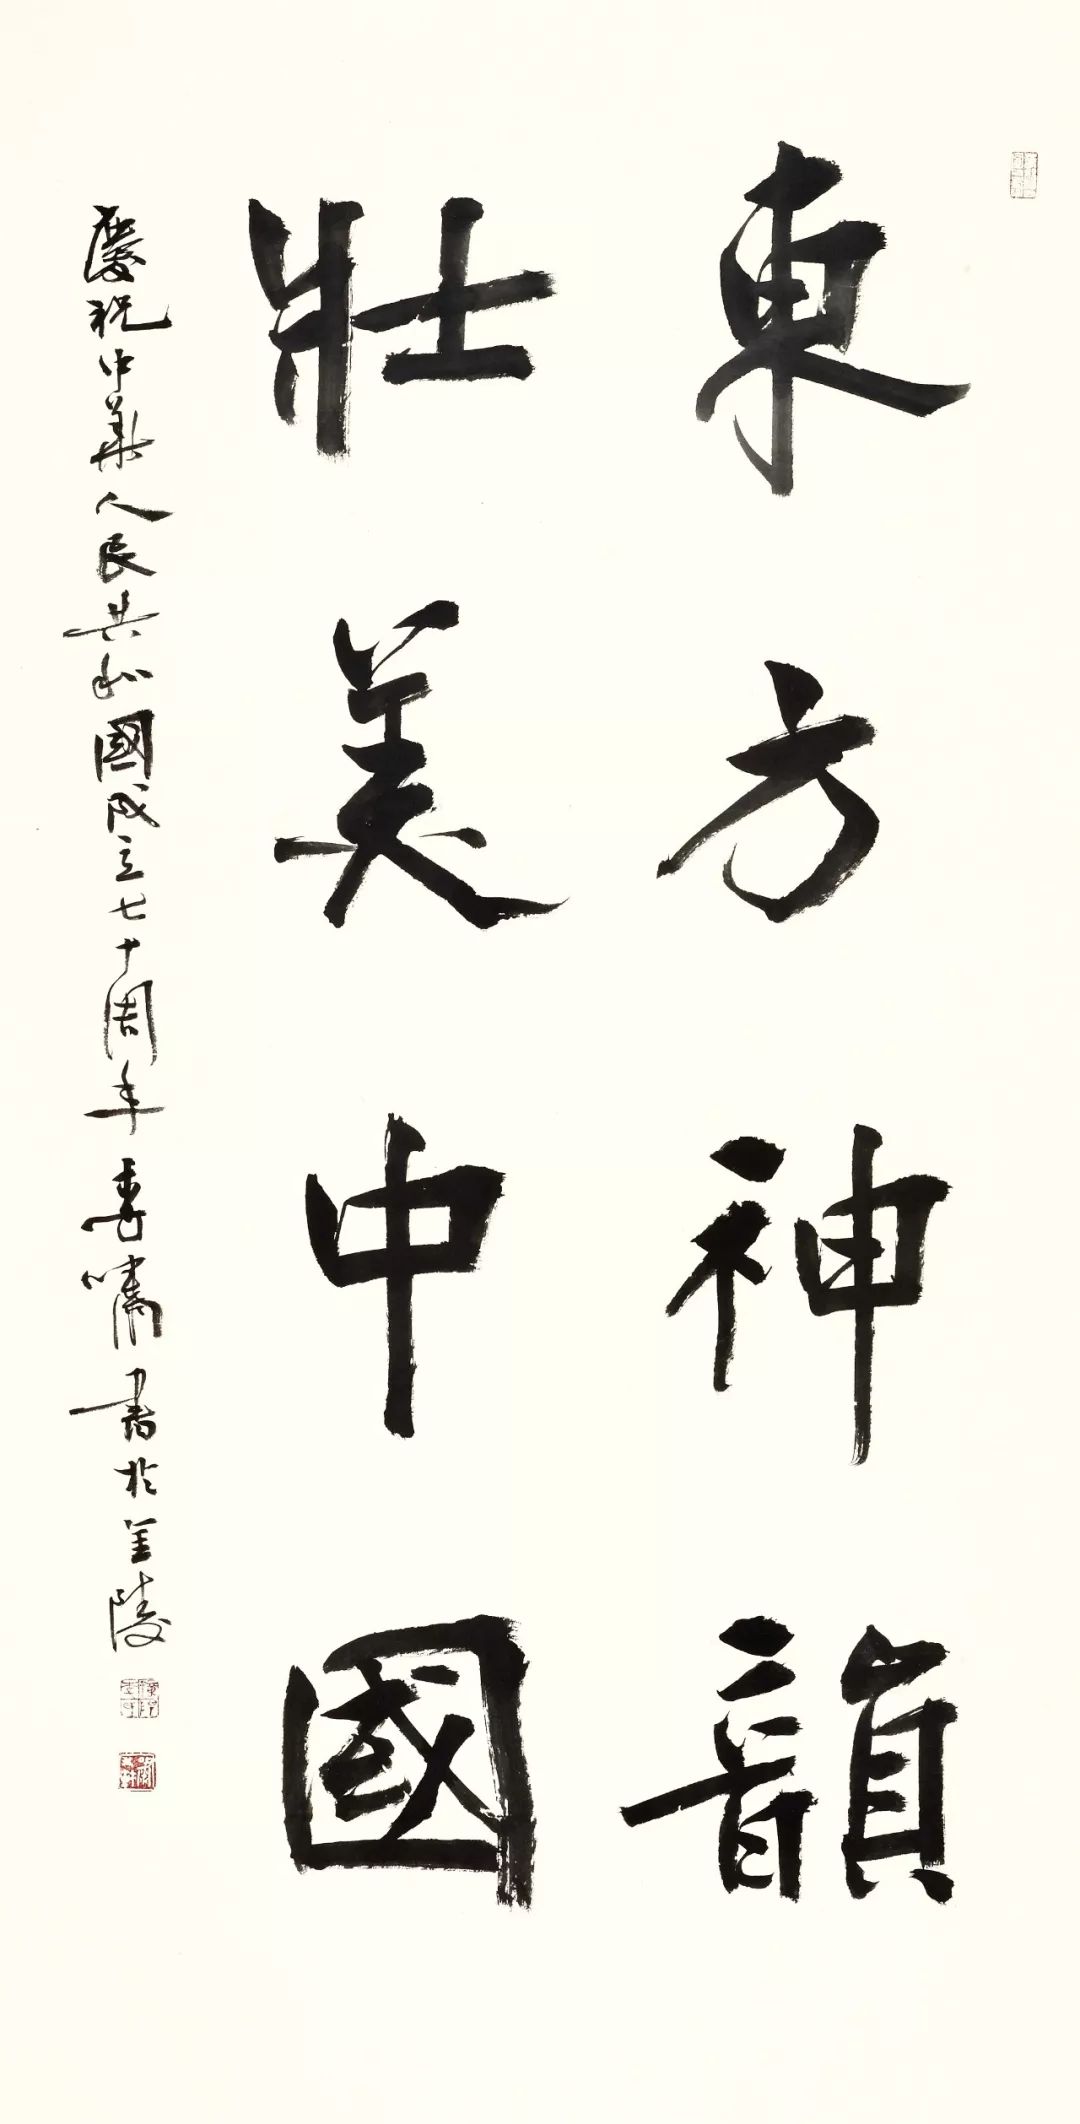 東方神韻
壯美中國
慶祝中華人民共和國成立七十周年喜嘯書於金陵